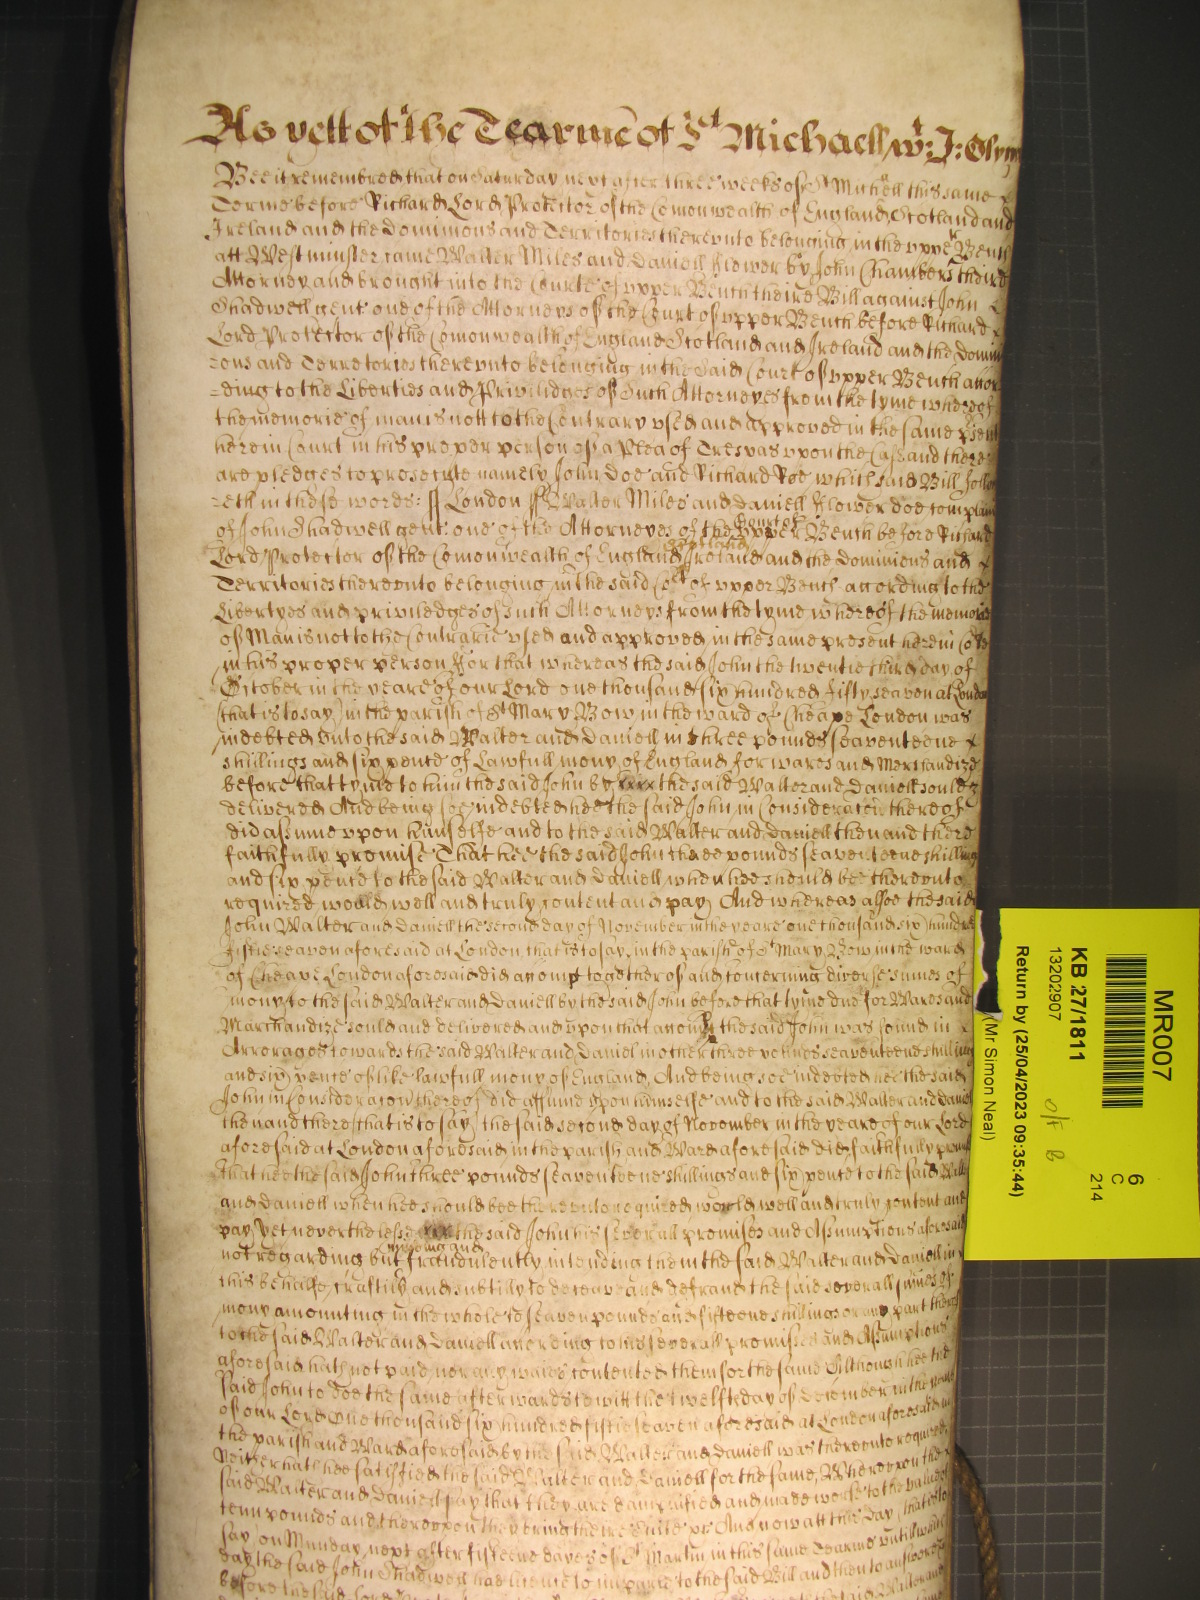 As yett of the Tearme of St Michaell wt: J: Glyn
Bee it remembred that on Saturday next after three weekes of St Michell this same
Terme before Richard Lord Protector of the Comonwealth of England Scotland and
Ireland and the Dominions and Territories thereunto belonging in the upper Bench
att Westminster came Walter Miles and Daniell Flower by John Chambers theire
Attorney and brought into the Courte of upper Bench theire Bill against John
Shadwell gent one of the Attorneys of the Court of upper Bench before Richard
Lord Protector of the Comonwealth of England Scotland and Ireland and the Domini
=ons and Terretories thereunto belonging in the said Court of upper Bench accor
=ding to the Liberties and Priviledges of such Attorneyes from the tyme whereof
the memorie of man is nott to the Contrary used and approved in the same psent
here in Court in his proper person of a Plea of Trespas upon the Case and there
are pledges to prosecute namely John Doe and Richard Roe which said Bill follow
=eth in these words: // London ss Walter Miles and Daniell Flower doe complain
of John Shadwell gent: one of the Attorneyes of the Court of upper Bench before Richard
Lord Protector of the Comonwealth of England Scotland Ireland and the Dominions and
Territories thereunto belonging in the said Cort of upper Bench according to the
Libertyes and priviledges of such Attorneys from the tyme whereof the memorie
of Man is not to the Contrarie used and approved in the same present here in Cort
in his proper person For that whereas the said John the twentie third day of
October in the yeare of our Lord one thousand six hundred fifty seaven at London
(that is to say) in the parish of St Mary Bow in the ward of Cheape London was
indebted unto the said Walter and Daniell in three pounds seaventeene
shillings and six pence of Lawfull mony of England for wares and Merchandize
before that tyme to him the said John by the said Walter and Daniell sould &
delivered And being soe indebted hee the said John in Consideracon thereof
did assume upon himselfe and to the said Walter and Daniell then and there
faithfully promise That hee the said John three pounds seaventeene shillings
and six pence to the said Walter and Daniell when hee should bee thereunto
required would well and truly content and pay And whereas alsoe the said
John Walter and Daniell the second day of November in the yeare one thousand six hundred
fiftie seaven aforesaid at London that is to say in the parish of St Mary Bow in the ward
of Cheape London aforesaid did accompt together of and concerning diverse sumes of
mony to the said Walter and Daniell by the said John before that tyme due for Wares and
Marchandize sould and delivered and upon that accompt the said John was found in
Arrerages towards the said Walter and Daniel in other three pounds seaventeene shillings
and six pence of like lawfull mony of England And being soe indebted hee the said
John in Consideracon thereof did assume upon himselfe and to the said Walter and Daniell
then and there (that is to say) the said second day of November in the yeare of our Lord
aforesaid at London aforesaid in the parish and Ward aforesaid did faithfully promise
that hee the said John three pounds seaventeene shillings and six pence to the said Walter
and Daniell when hee should bee thereunto required would well and truly content and
pay Yet neverthelesse the said John his severall promises and Assumptions aforesaid
not regarding but minding and fraudulently intending them the said Walter and Daniell in
this behalfe craftily and subtilly to deceave and defraud the said severall sumes of
mony amounting in the whole to seaven pounds and fifteene shillings or any part thereof
to the said Walter and Daniell according to his severall promises and Assumptions
aforesaid hath not paid nor any waies contented them for the same Although hee the
said John to doe the same afterwards to witt the twelfte day of December in the yeare
of our Lord One thousand six hundred fiftie seaven aforesaid at London aforesaid in
the parish and Ward aforesaid by the said Walter and Daniell was thereunto required
Neither hath hee satisfied the said Walter and Daniell for the same, Whereupon the
said Walter and Daniell say that they are damnified and made worse to the value of
tenn pounds and thereupon they bring theire suite &c And now att this day (that is to
say) on Munday next after fifteene dayes of St Martin in this same Tearme untill which
day the said John Shadwell had licence to imparle to the said Bill and then to answere &c
before the said Lord
MR007
6
C
214
KB 27/1811
13202907
Return by (25/04/2023 09:35:44)
(Mr Simon Neal)